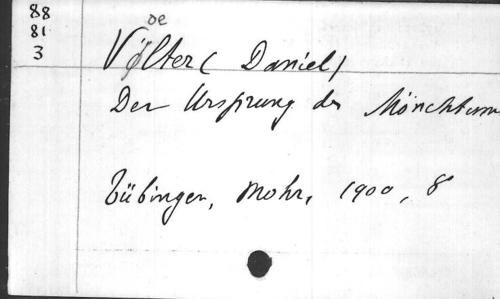 88
81
3
oe
Völter (Daniel)
Der Ursprung des Mönchtum
Tübingen, Mohr, 1900, 8